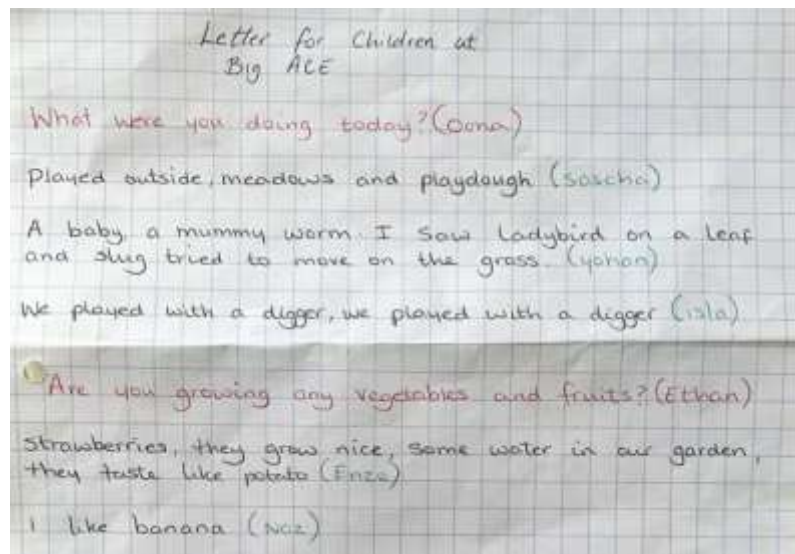 Letter for Children at
Big ACE
What were you doing today? (Oona)
Played outside, meadows and playdough (Sascha)
A baby a mummy worm. I saw Ladybird on a leaf
and slug tried to move on the grass. (Yonan)
We played with a digger, we played with a digger (isla)
Are you growing any vegetables and fruits? (Ethan)
Strawberries, they grow nice, some water in our garden,
they taste like potato (Enzo)
I like banana (Naz)